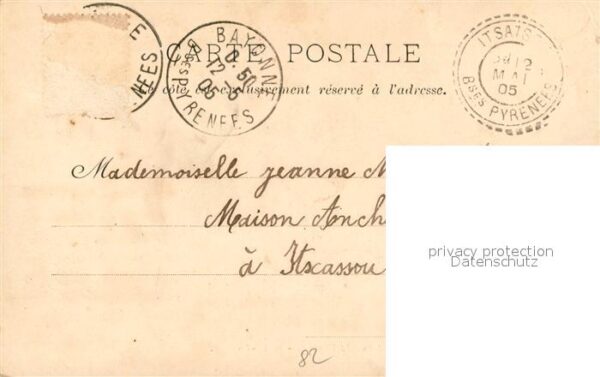 CARTE POSTALE
Ce côté est exclusivement réservé à l'adresse.
E
ÉES
BAYONNE
12-5
05
PYRENEES
ITSATS
12
MAI
05
BSES PYRENEES
Mademoiselle Jeanne M
Maison Anch
à Itxassou
privacy protection
Datenschutz
82